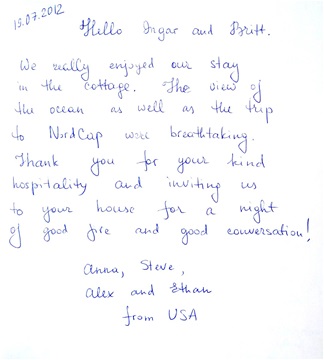 15.07.2012
Hello Ingar and Britt.
We really enjoyed our stay
in the cottage. The view of
the ocean as well as the trip
to NordCap were breathtaking.
Thank you for your kind
hospitality and inviting us
to your house for a night
of good fire and good conversation!
Anna, Steve,
Alex and Ethan
from USA